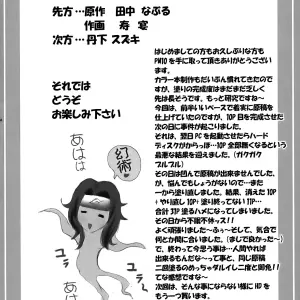 先方…原作 田中 なぷる
作画 寿 宴
次方…丹下 スズキ
それでは
どうぞ
お楽しみ下さい
はじめましての方もお久しぶりな方も
PMTOを手に取って頂きありがとうござい
ます。
カラー本制作もだいぶん慣れてきたのです
が、塗りの完成度はまだまだ乏しく
先は長そうです、もっと研究ですね〜
今回は、前半いいペースで着実に原稿を
仕上げていたのですが、10P 目を完成させた
次の日に事件が起こりました。
それは、翌日PCを起動させたらハード
ディスクがからっぽ…10P 全部無くなるという
最悪な結果を迎えました。(ガクガク
ブルブル)
その日は凹んで原稿が出来ませんでした
が、悩んでもしょうがないので…また
一から塗り直しました。結果、消えた10P
+やり直し 10P+塗り終えてない 11P…
合計31P塗るハメになってしまいました。
その日から不眠不休ッス!!
よく頑張りました〜ふぅ〜そして、気合で
何とか間に合いました。(まじで良かった〜)
で、終わって今思う事は…人間やれば
出来るもんだな〜って事と、同じ原稿
二回塗るのめっちゃダルイし二度と御免!!
な感想です。
次回は、そんな事にならない様にHDを
もう一つ買います。
幻術
あはは
あはは
ユラ〜
ユラ〜